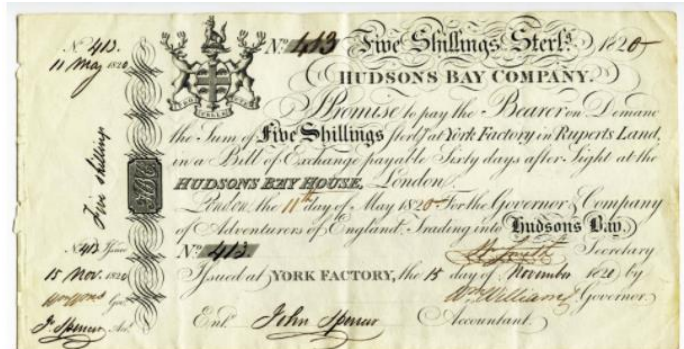 No. 413.
11 May 1820
Five shillings
No. 413 Issued
15 Nov. 1820
Wm Williams Govr.
Jn. Spencer Acct.
No. 413 Five Shillings Sterlg. 1820
HUDSONS BAY COMPANY.
I Promise to pay the Bearer on Demand
the Sum of Five Shillings Sterlg. at York Factory in Ruperts Land,
in a Bill of Exchange payable Sixty days after Sight at the
HUDSONS BAY HOUSE, London.
London the 11th day of May 1820 For the Governor & Company
of Adventurers of England Trading into Hudsons Bay.
No. 413. Secretary
Issued at YORK FACTORY, the 15 day of November 1820 by
Wm. Williams Governor.
Entd. John Spencer Accountant.